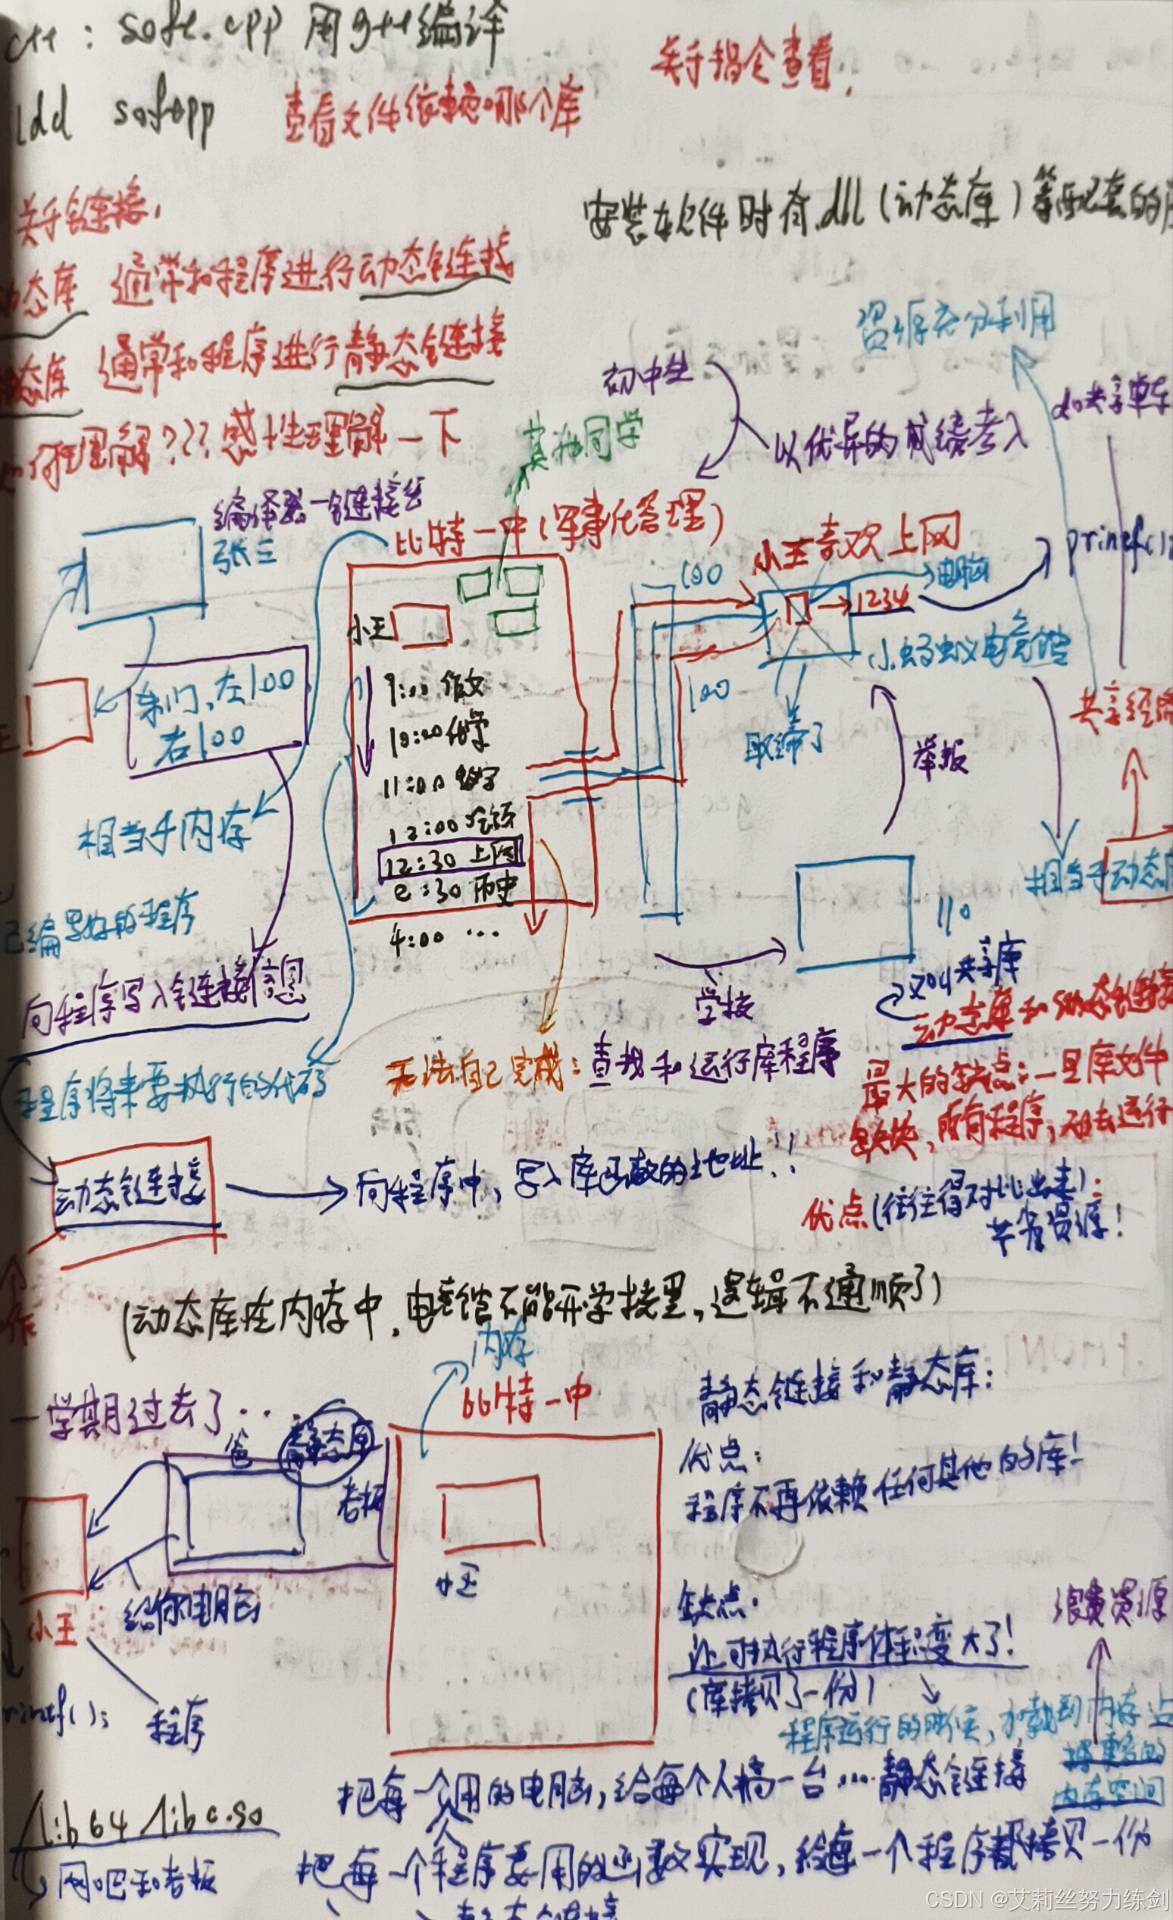 c++：soft.cpp 用g++编译
关于指令查看，
ldd softpp 查看文件依赖哪个库
关于链接，
安装软件时有.dll（动态库）等配套的
动态库 通常和程序进行动态链接
态库 通常和程序进行静态链接
如何理解？？？感性理解一下
资源充分利用
如共享单车
初中生
以优异的成绩考入
其他同学
编译器—链接器
张三
比特一中（军事化管理）
小王喜欢上网
电脑
printf();
100
1234
小王
小蚂蚁电竞馆
9:00 作文
10:00 化学
11:00 数字
12:30 上网
2:30 历史
4:00 …
东门，左100
右100
100
取缔了
举报
共享经济
相当于内存
相当于动态库
己编写好的程序
110
向程序写入链接信息
学校
又叫共享库
动态库和动态链接
程序将来要执行的代码
无法自己完成：查找和运行库程序
最大的缺点：一旦库文件
缺失，所有程序，无法运行
动态链接
向程序中，写入库函数的地址！！
优点（往往得对比出来）：
节省资源！
（动态库在内存中，电竞馆不能开学校里，逻辑不通顺了）
内存
一学期过去了…
比特一中
静态链接和静态库：
爸
静态库
老板
优点：
程序不再依赖任何其他的库！
小王
给你电脑
小王
缺点：
让可执行程序体积变大了！
（库拷贝了一份）
浪费资源
printf();
程序
程序运行的时候，加载到内存占
内存空间
把每一个人用的电脑，给每个人搞一台…静态链接
/lib64/libc.so
网吧和老板
把每一个程序要用的函数实现，给每一个程序都拷贝一份
CSDN @艾莉丝努力练剑